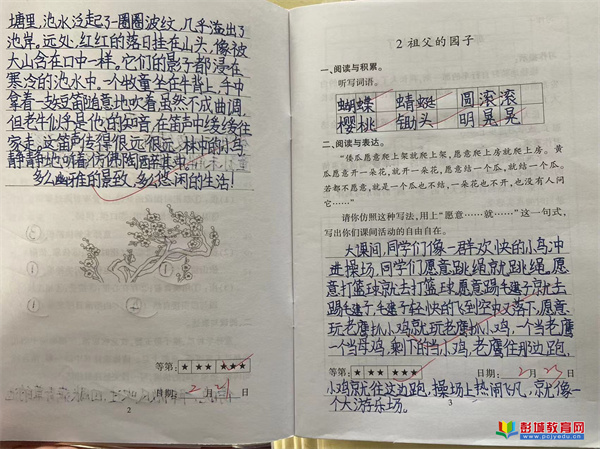 塘里,池水泛起了一圈圈波纹,几乎溢出了
池岸。远处,红红的落日挂在山头,像被
大山含在口中一样,它们的影子都浸在
寒冷的池水中。一个牧童坐在牛背上,手中
拿着一支短笛随意地吹着虽然不成曲调,
但老牛似乎是他的知音,在笛声中缓缓往
家走。这笛声传得很远很远,林中的小鸟
静静地听着,仿佛陶醉其中。
多么幽雅的景致,多么悠闲的生活!
等第:★ ★★ ★★★
日期:2月21日
2
2 祖父的园子
一、阅读与积累。
听写词语。
蝴蝶 蜻蜓 圆滚滚
樱桃 锄头 明晃晃
二、阅读与表达。
“倭瓜愿意爬上架就爬上架,愿意爬上房就爬上房。黄
瓜愿意开一朵花,就开一朵花,愿意结一个瓜,就结一个瓜。
若都不愿意,就是一个瓜也不结,一朵花也不开,也没有人问
它……”
请你仿照这种写法,用上“愿意……就……”这一句式,
写出你们课间活动的自由自在。
大课间,同学们像一群欢快的小鸟冲
进操场,同学们愿意跳绳就跳绳,愿
意打篮球就去打篮球,愿意踢毽子就去
踢毽子,毽子轻快的飞到空中又落下,愿意
玩老鹰抓小鸡就玩老鹰抓小鸡,一个当老鹰
一个当母鸡,剩下的当小鸡,老鹰往那边跑,
等第:★ ★★ ★★★
日期:2月23日
小鸡就往这边跑,操场上热闹飞凡,就像一
个大游乐场。
3
彭城教育网
www.pcjyedu.cn